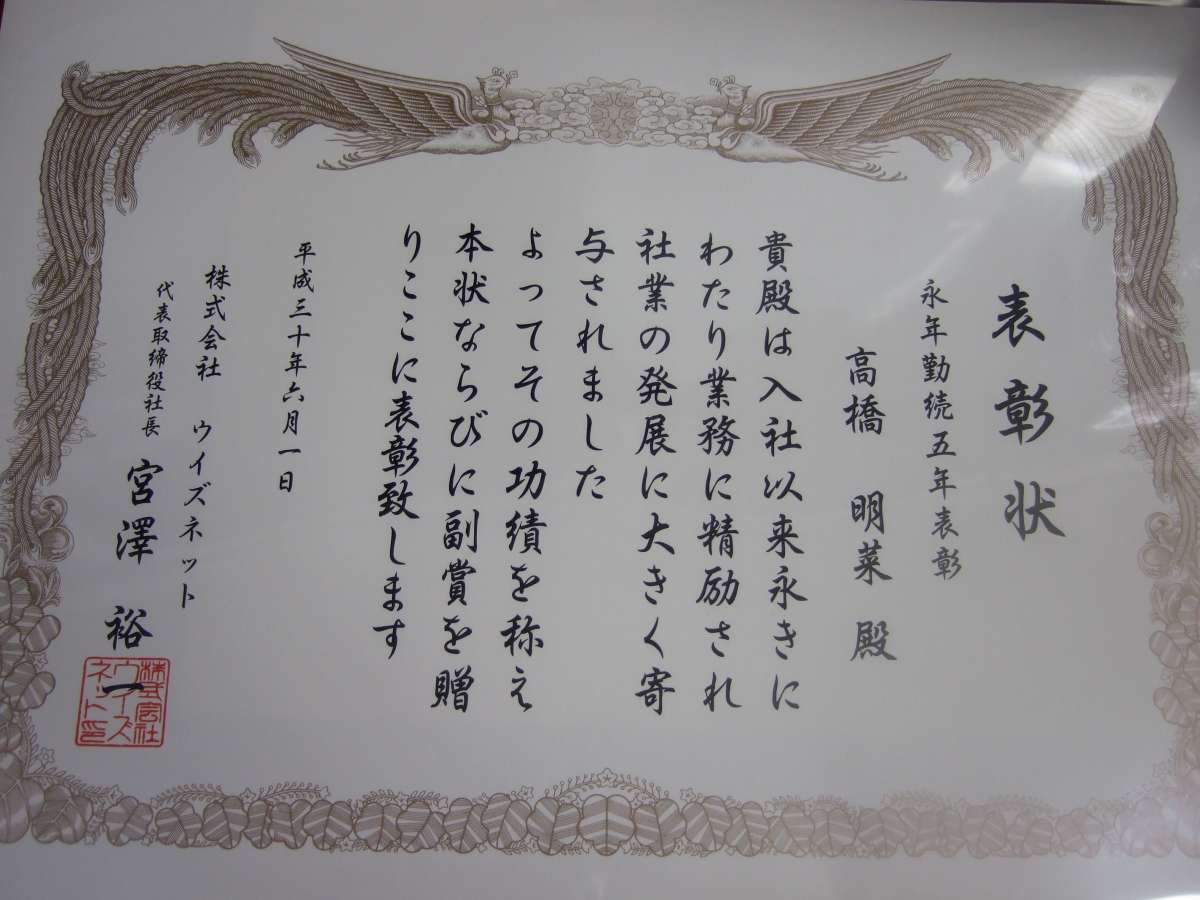 表彰状
永年勤続五年表彰
高橋 明菜 殿
貴殿は入社以来永きに
わたり業務に精励され
社業の発展に大きく寄
与されました
よってその功績を称え
本状ならびに副賞を贈
りここに表彰致します
平成三十年六月一日
株式会社 ウイズネット
代表取締役社長 宮澤 裕一
株式会社
ウイズ
ネット印